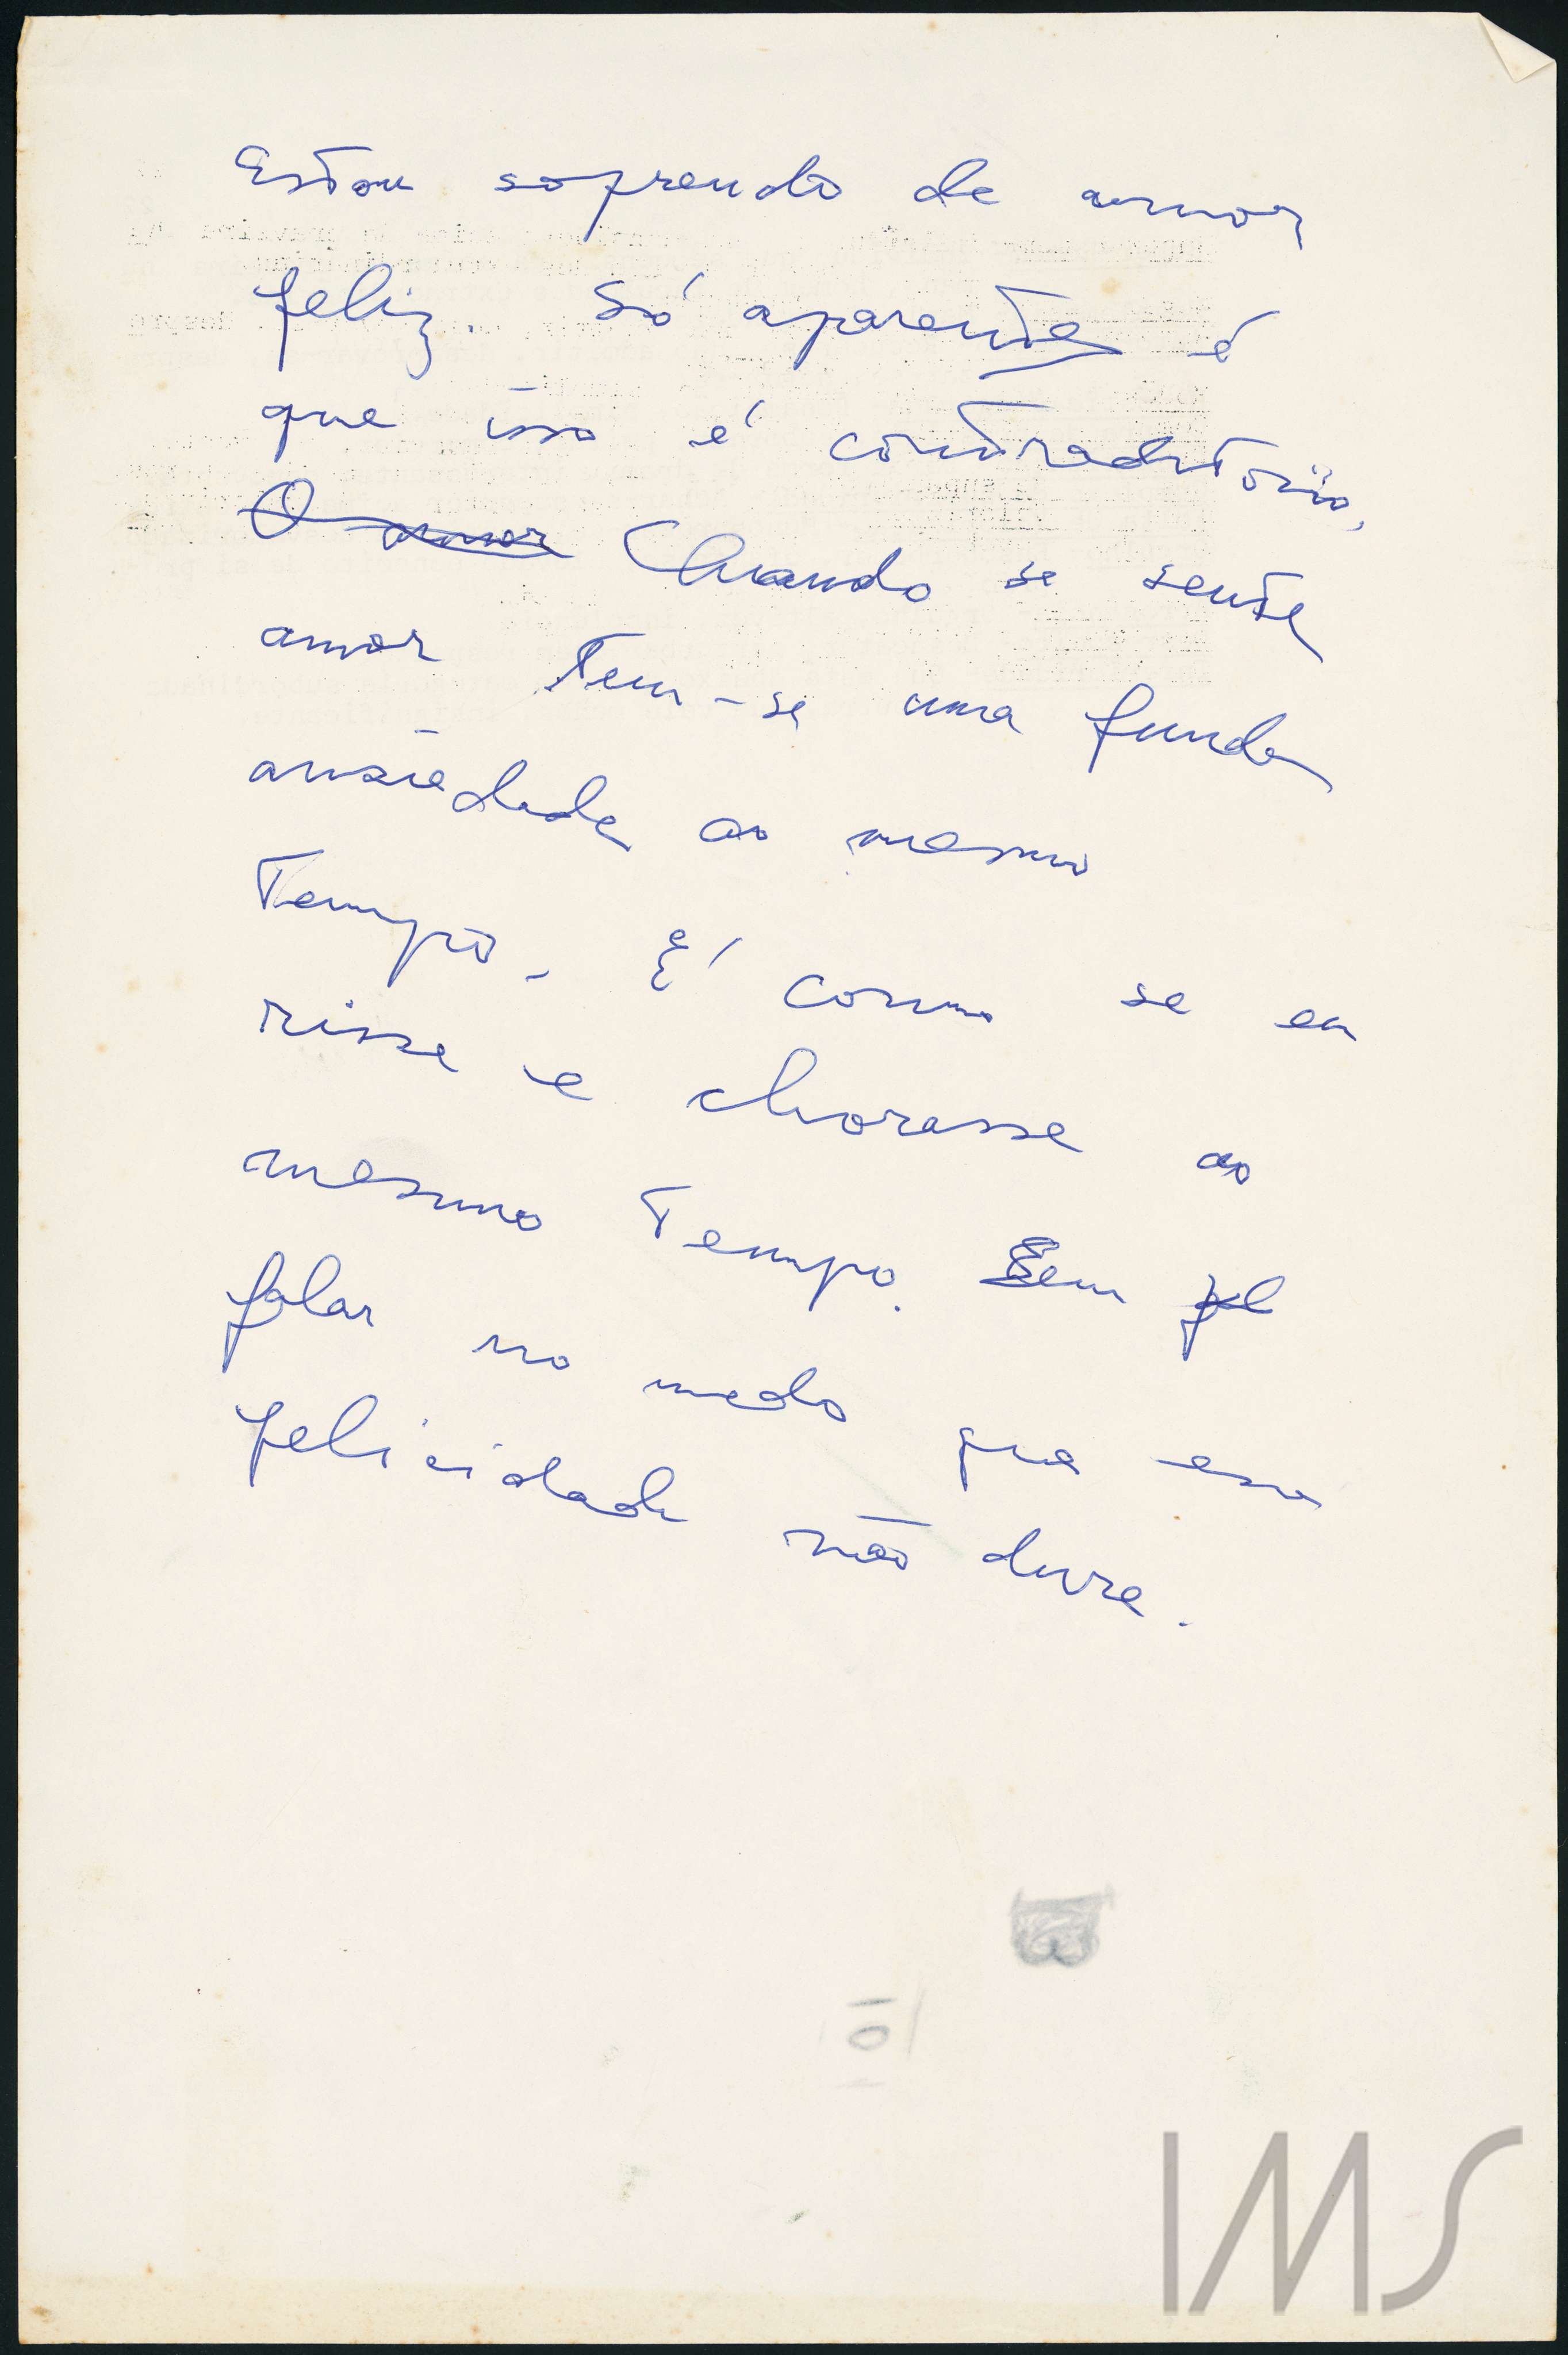 Estou sofrendo de amor
feliz. Só aparente é
que isso é contraditório.
O amor Quando se sente
amor tem-se uma funda
ansiedade ao mesmo
tempo. É como se eu
risse e chorasse ao
mesmo tempo. Sem fl
falar no medo que essa
felicidade não dure.
10
IMS